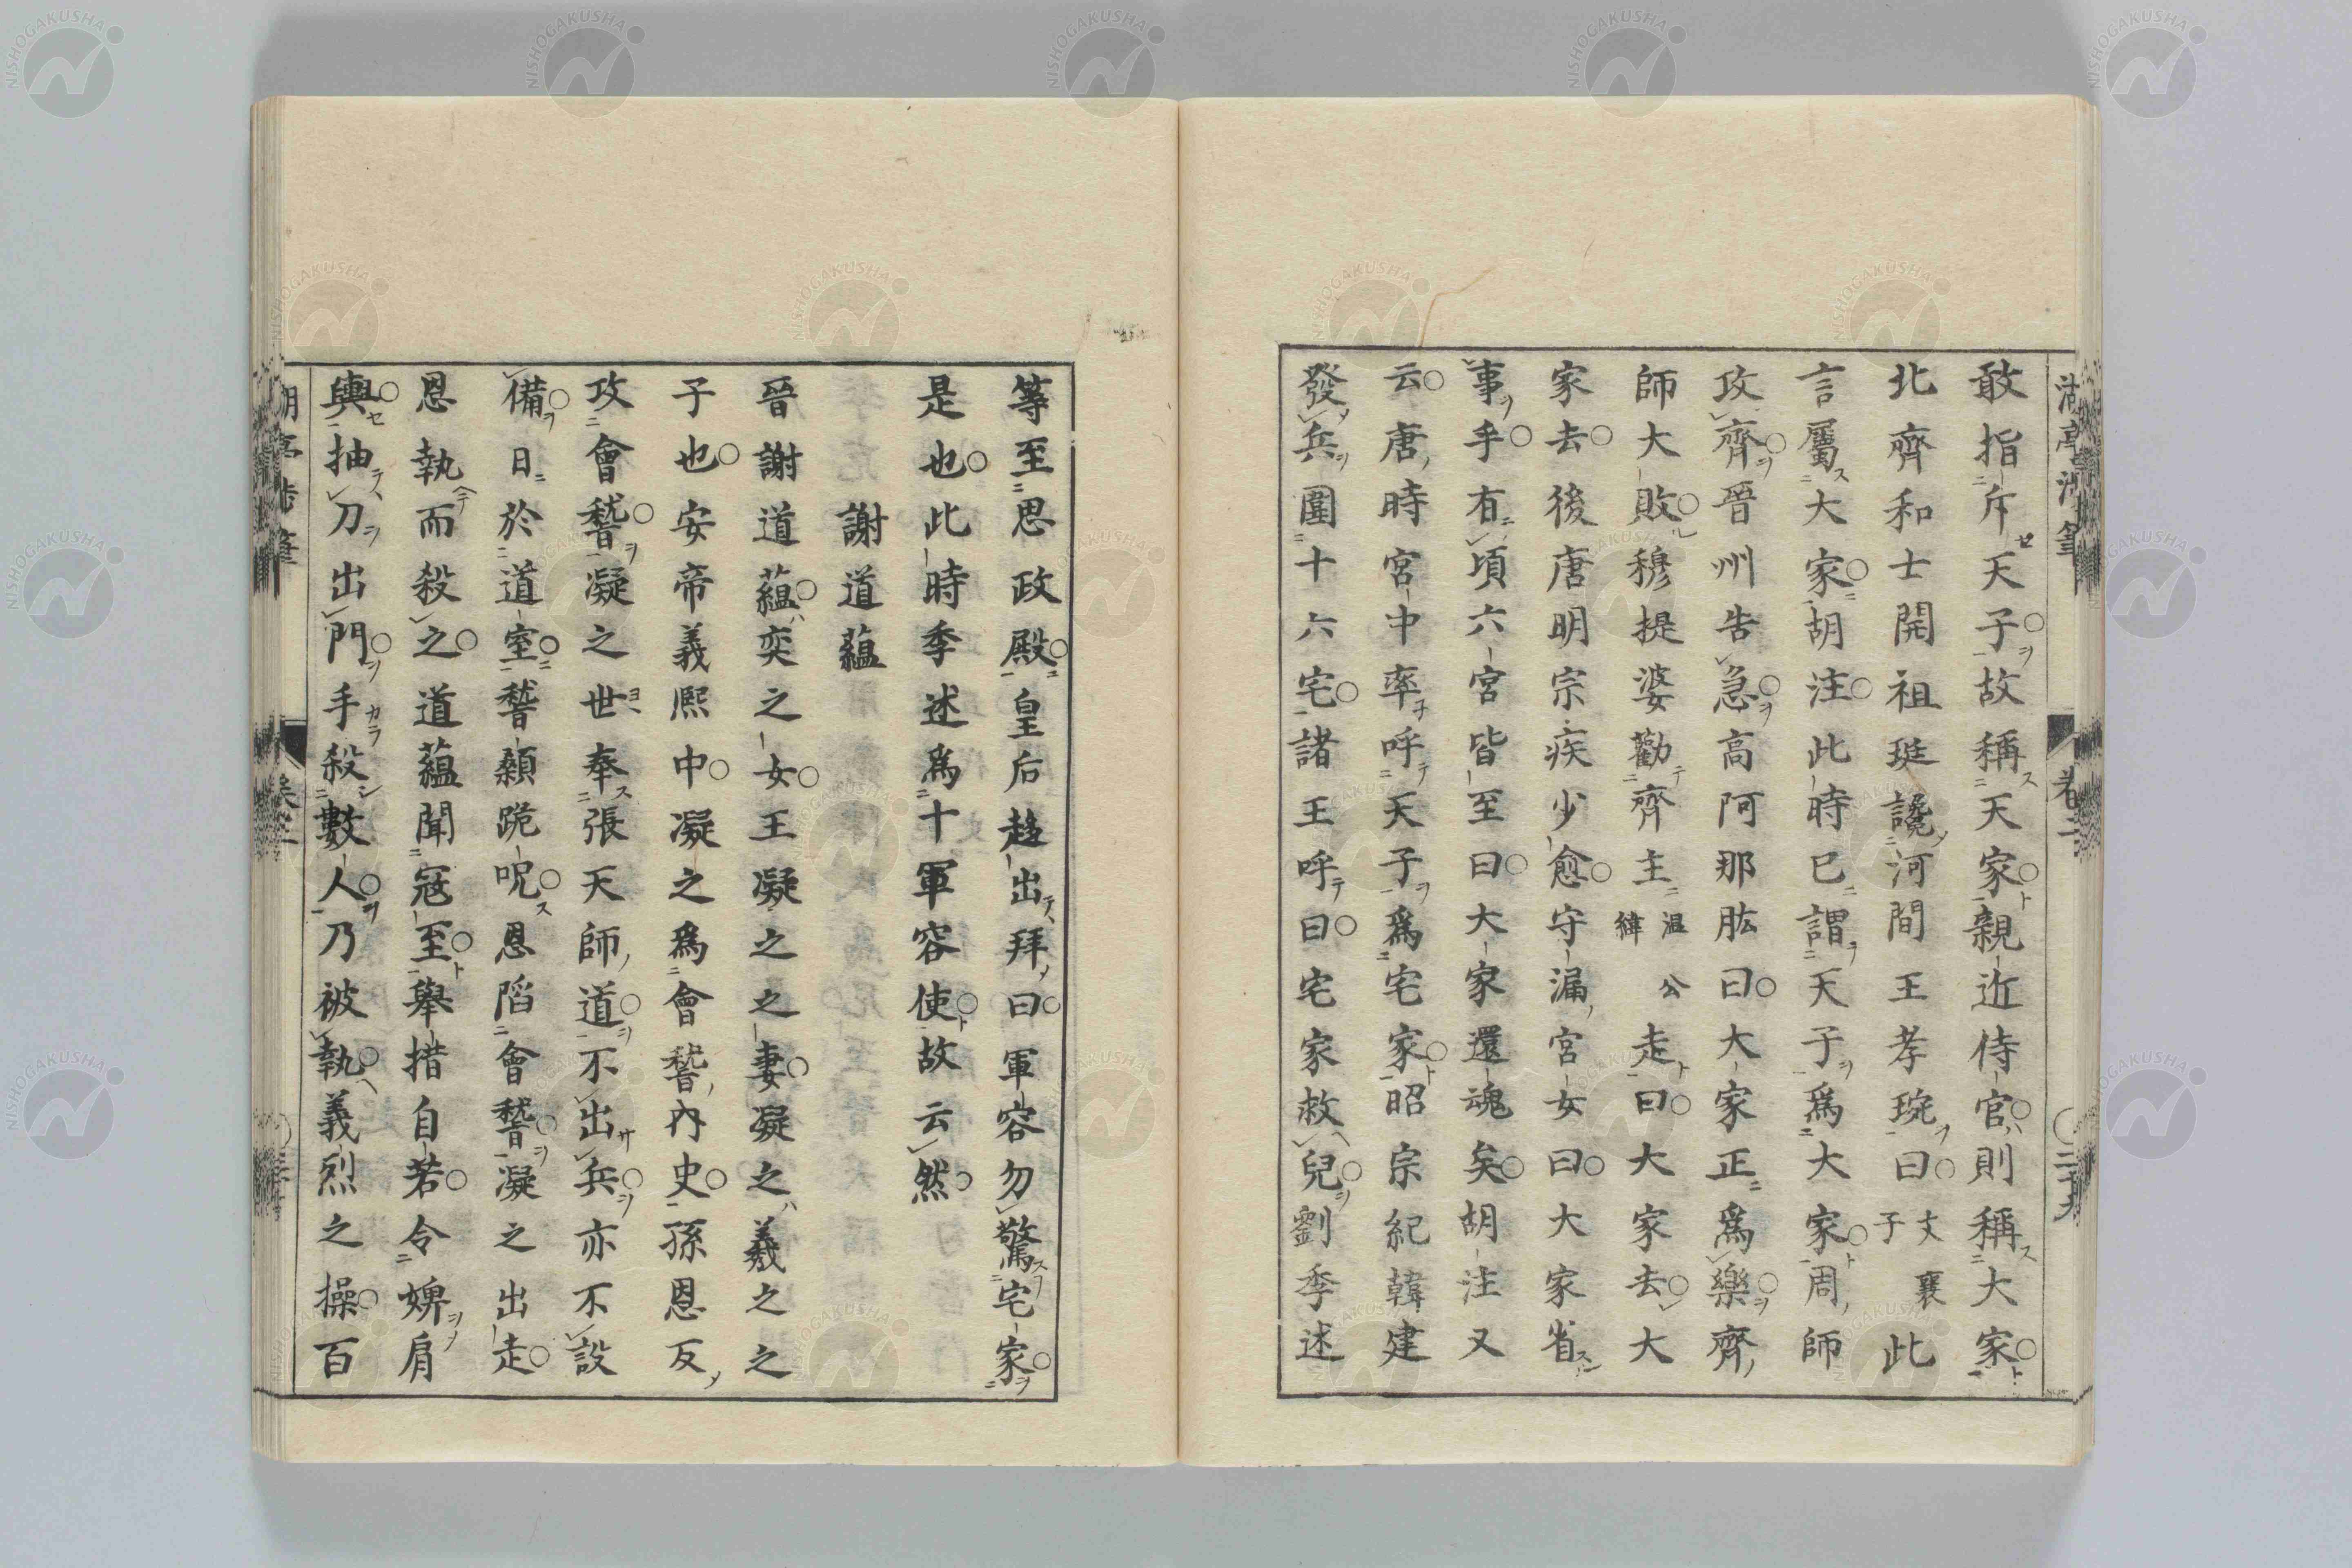 敢指斥天子故稱天家親近侍官則稱大家
北齊和士開祖珽讒河間王孝琬曰文襄子此
言屬大家胡注此時已謂天子爲大家周師
攻齊晉州告急高阿那肱曰大家正爲樂齊
師大敗穆提婆勸齊主溫公緯走曰大家去大
家去後唐明宗疾少愈守漏宮女曰大家省
事乎有頃六宮皆至曰大家還魂矣胡注又
云唐時宮中率呼天子爲宅家昭宗紀韓建
發兵圍十六宅諸王呼曰宅家救兒劉季述
等至思政殿皇后趨出拜曰軍容勿驚宅家
是也此時季述爲十軍容使故云然
謝道蘊
晉謝道蘊奕之女王凝之之妻凝之羲之之
子也安帝義熙中凝之爲會稽內史孫恩反
攻會稽凝之世奉張天師道不出兵亦不設
備日於道室稽顙跪呪恩陷會稽凝之出走
恩執而殺之道蘊聞寇至舉措自若令婢肩
輿抽刀出門手殺數人乃被執義烈之操百